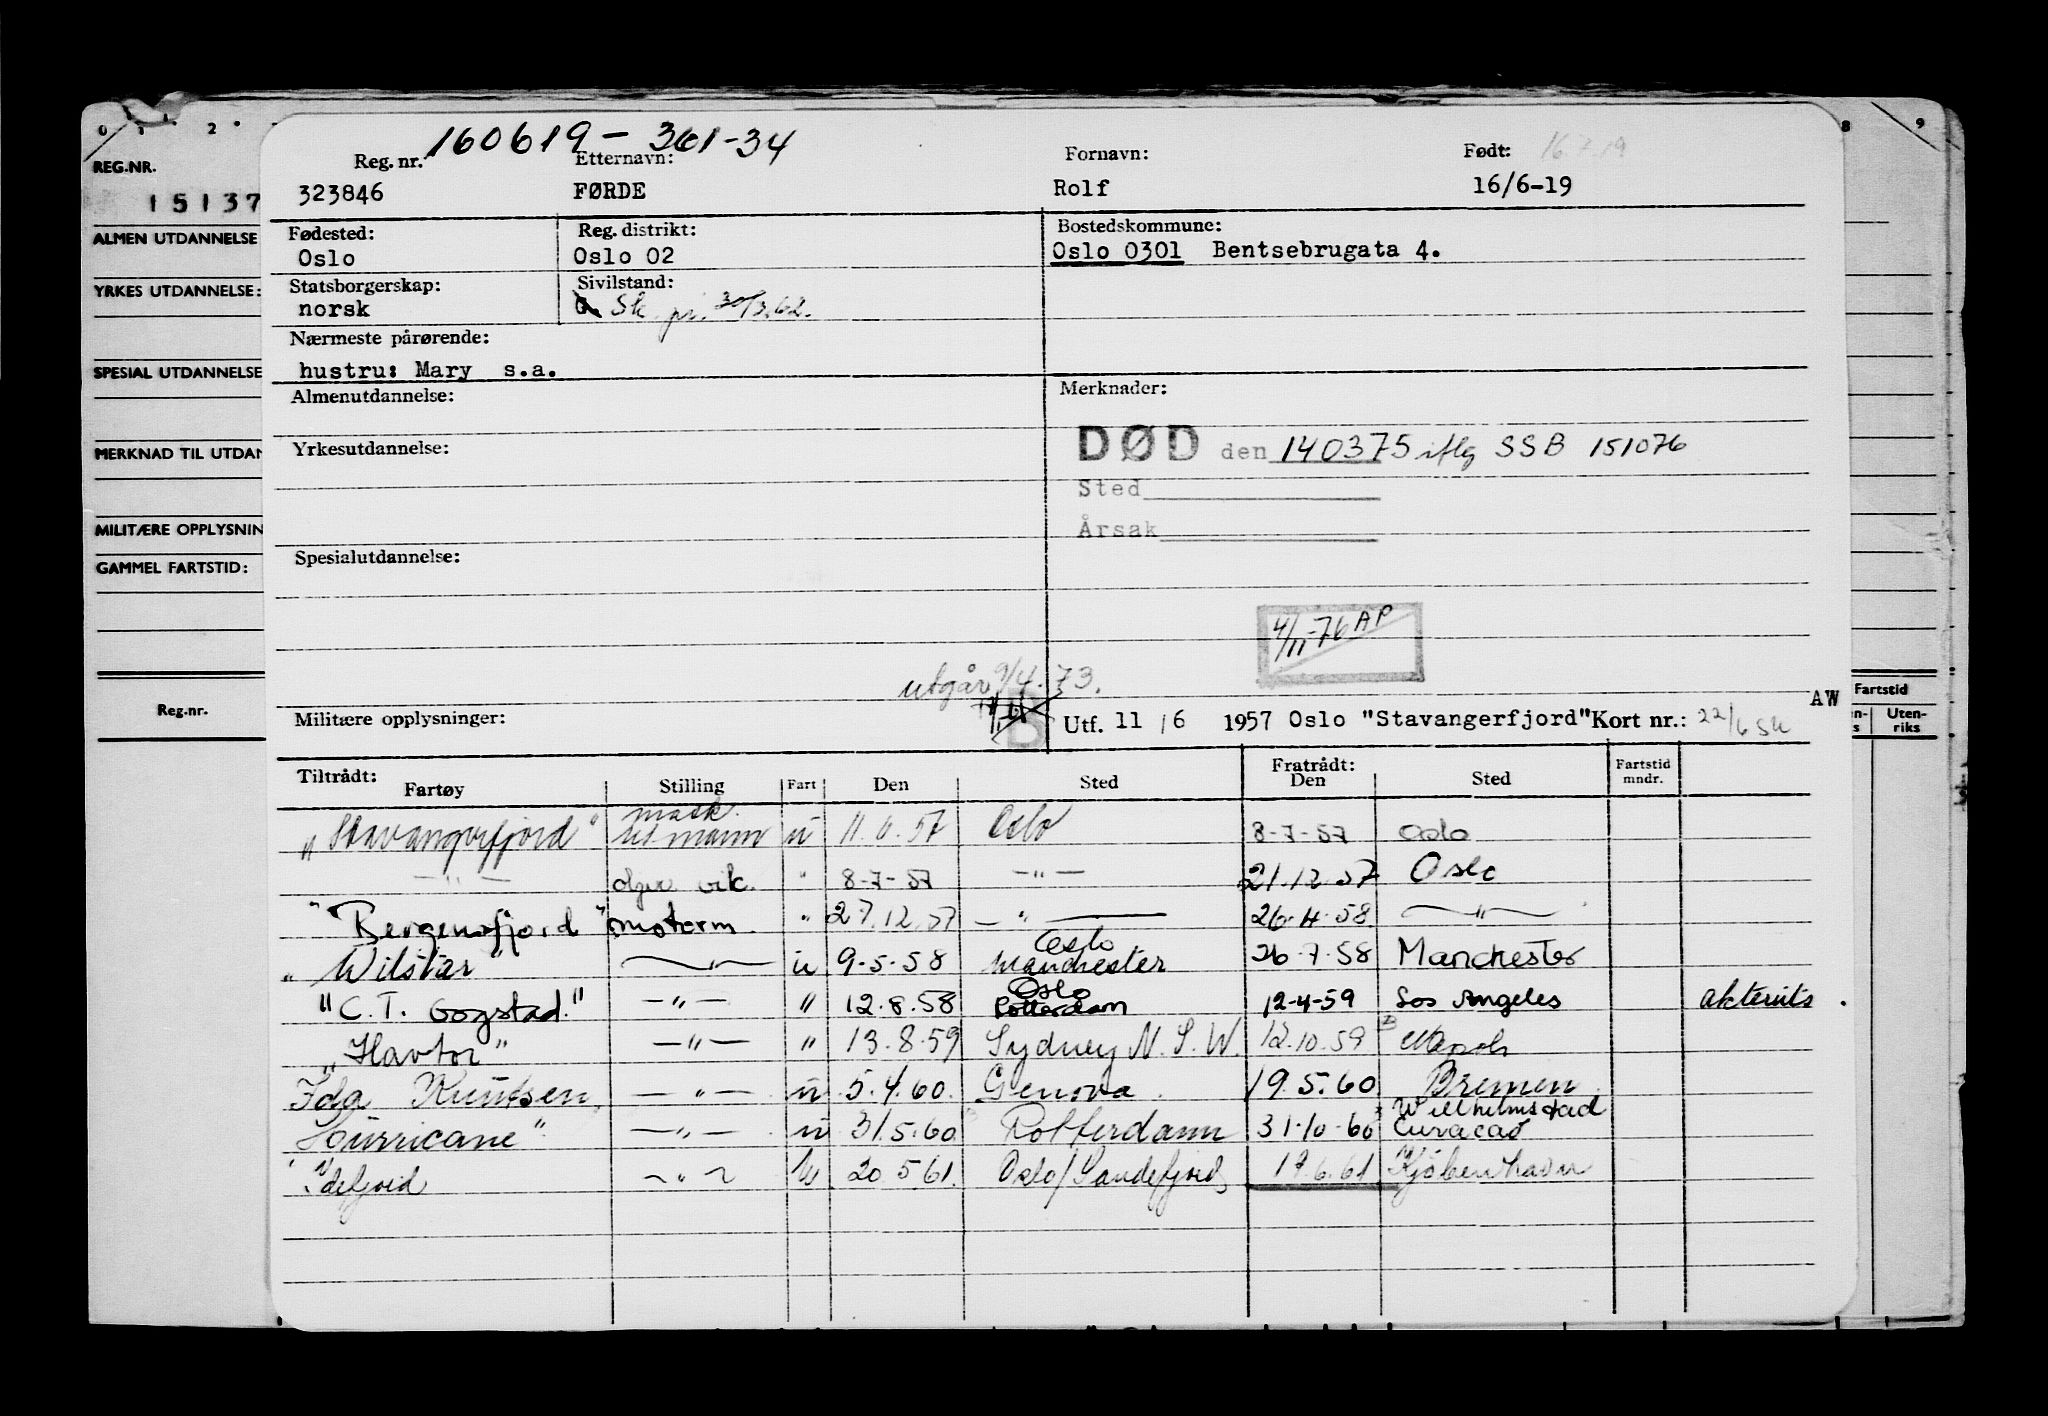 0 1 2 8 9
REG.NR.
15137
ALMEN UTDANNELSE
YRKES UTDANNELSE:
SPESIAL UTDANNELSE
MERKNAD TIL UTDAN
MILITÆRE OPPLYSNIN
GAMMEL FARTSTID:
Reg.nr.
Fartstid
Uten-
riks
160619-361-34
Reg. nr. Etternavn: Fornavn: Født: 16.7.19
323846 FØRDE Rolf 16/6-19
Fødested: Reg. distrikt: Bostedskommune:
Oslo Oslo 02 Oslo 0301 Bentsebrugata 4.
Statsborgerskap: Sivilstand:
norsk Sk. pr. 30/3.62.
Nærmeste pårørende:
hustru: Mary s.a.
Almenutdannelse: Merknader:
DØD den 140375 iflg SSB 151076
Yrkesutdannelse:
Sted
Årsak
Spesialutdannelse:
4/11-76 AP
utgår 9/4.73.
Militære opplysninger: Utf. 11/6 1957 Oslo "Stavangerfjord" Kort nr.: 22/6 SK AW
Tiltrådt: Fratrådt: Fartstid
Fartøy Stilling Fart Den Sted Den Sted mndr.
"Stavangerfjord" mask. u 11.6.57 Oslo 8-7-57 Oslo
—"— vik. " 8-7-57 —"— 21.12.57 Oslo
"Bergensfjord" motorm. " 27.12.57 —"— 26.4.58 —"—
"Wilstar" —"— u 9-5-58 Oslo Manchester 26.7.58 Manchester
"C.T. Gogstad." —"— " 12.8.58 Oslo Rotterdam 12-4-59 Los Angeles akteruts.
"Havtor" —"— " 13.8.59 Sydney N.S.W. 12.10.59
Ida Knudsen —"— u 5.4.60. Genova. 19.5.60 Bremen.
Hurricane" —"— u 31.5.60 Rotterdam 31-10-60 Willhelmstad Curacao
"Idefjord —"— 20.5.61. Oslo/Sandefjord 17.6.61 Kjøbenhavn